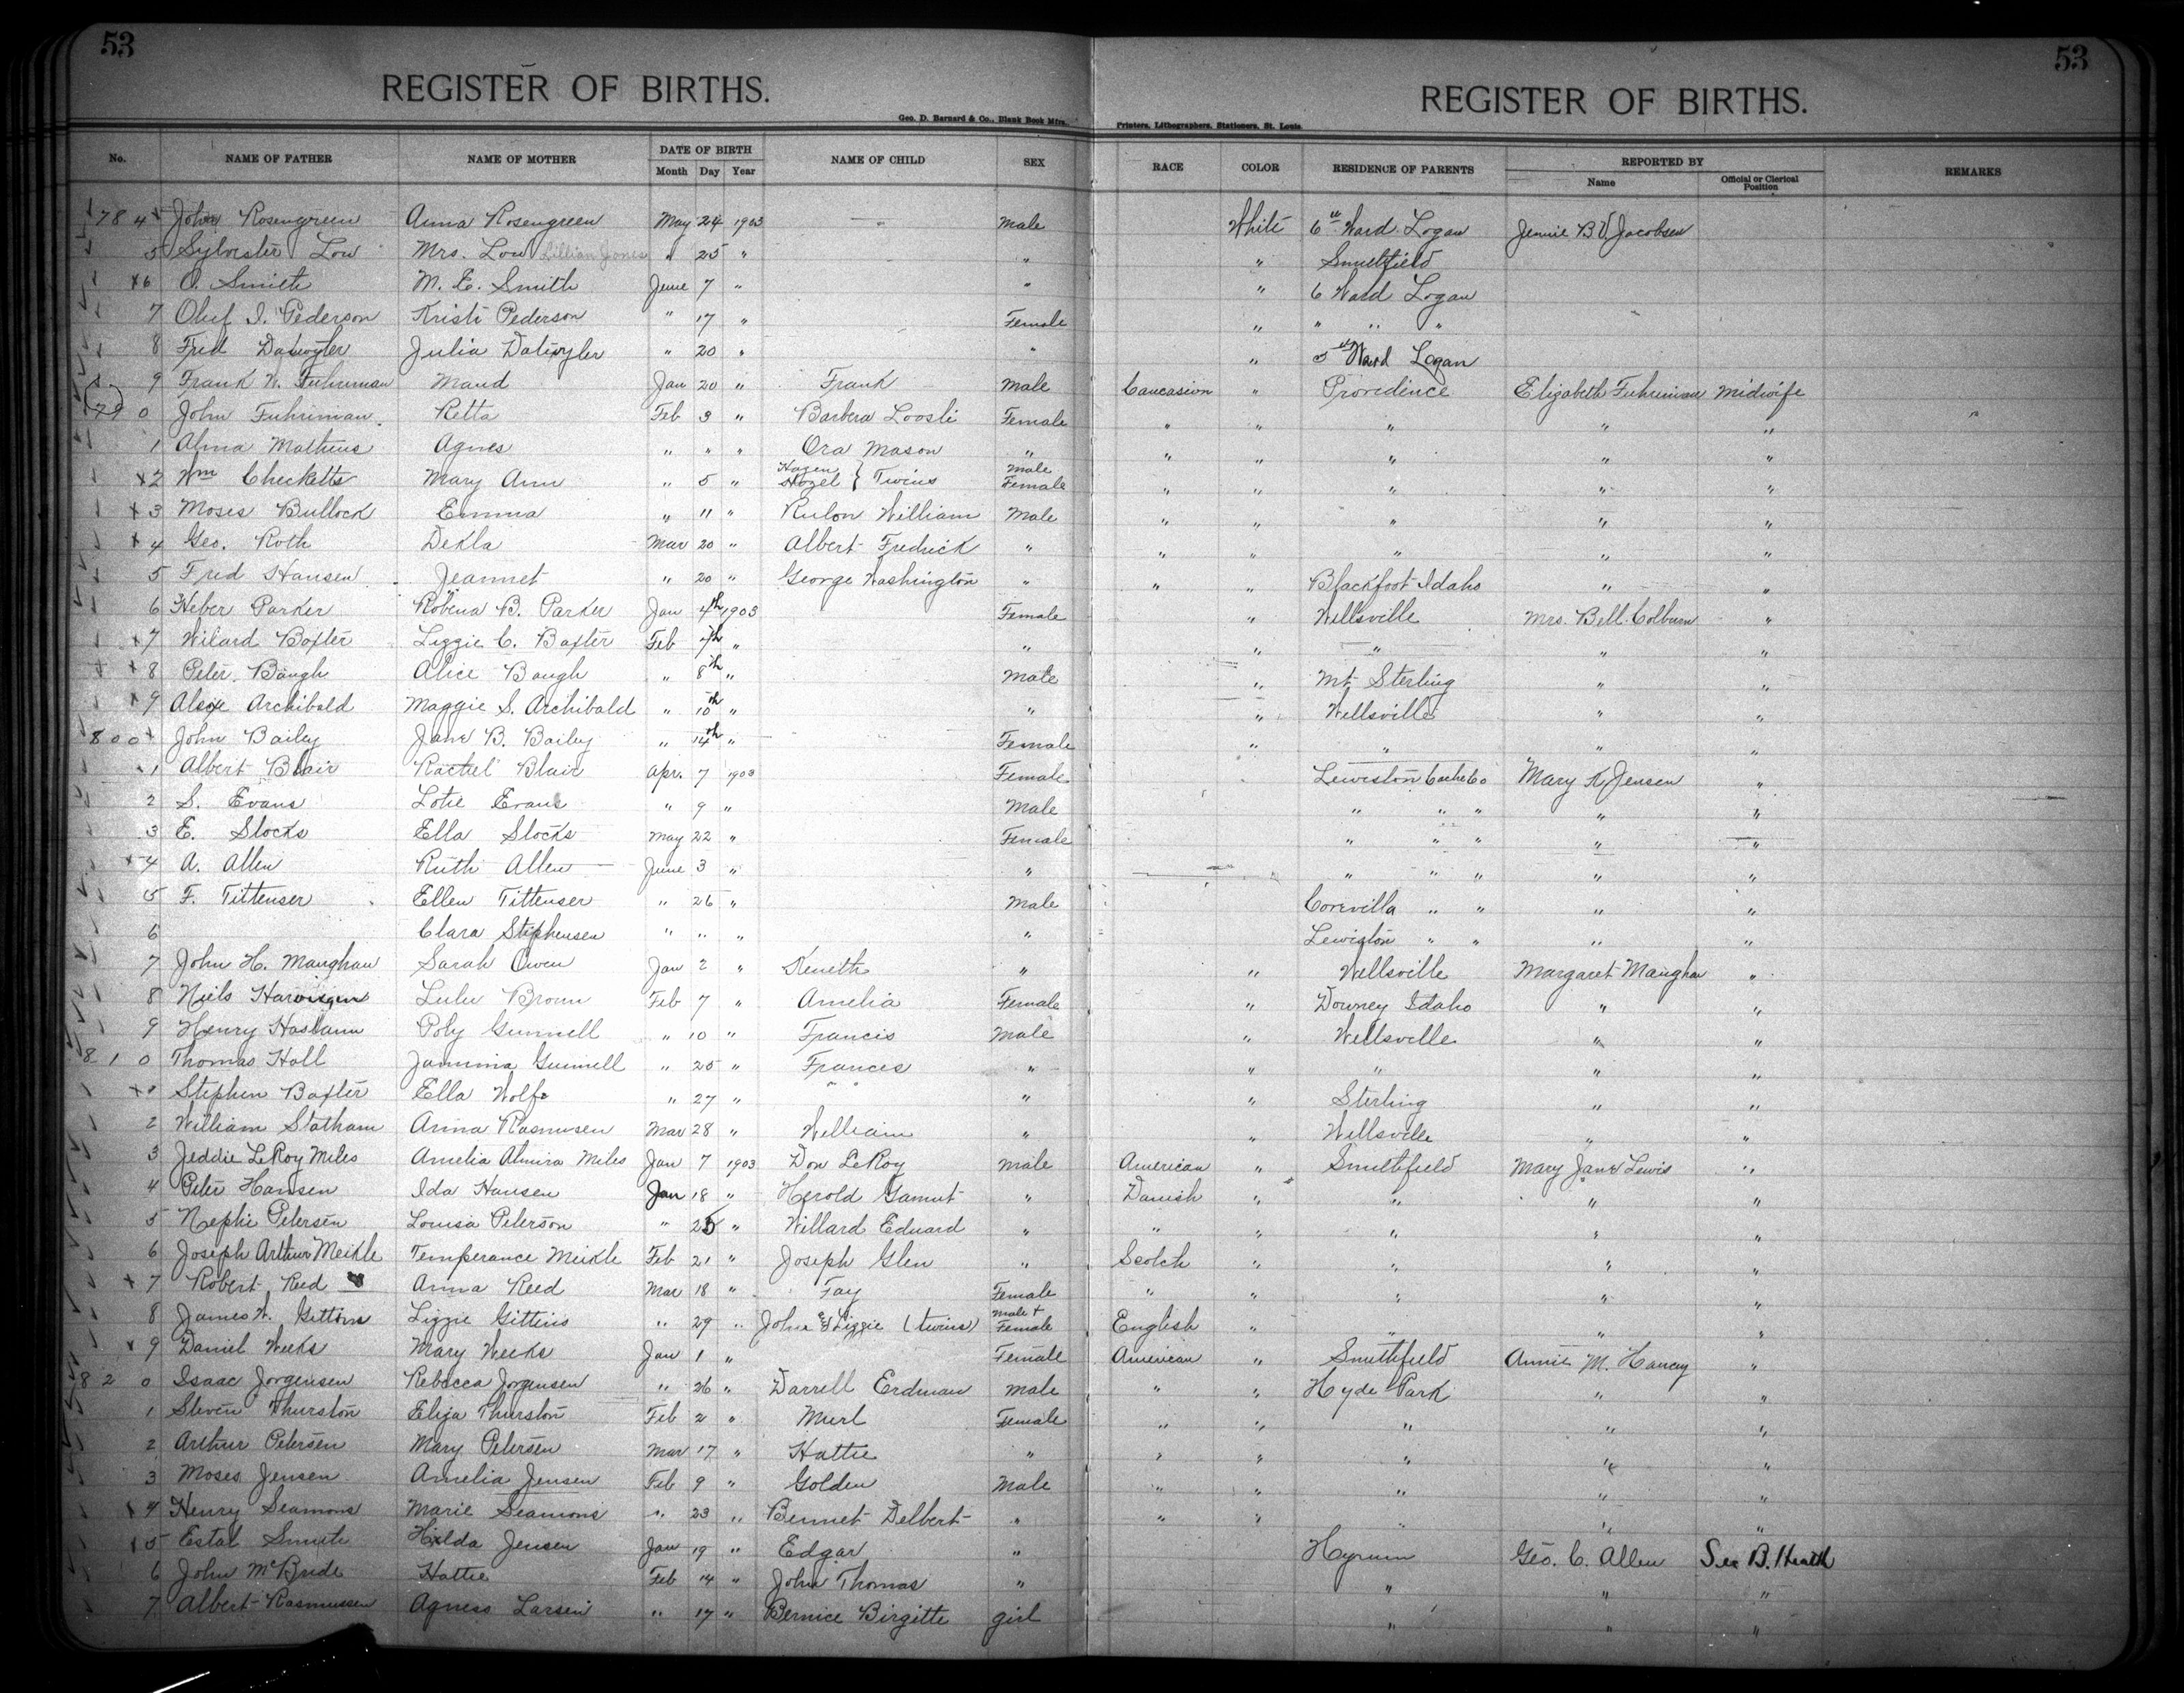 53 53
REGISTER OF BIRTHS. REGISTER OF BIRTHS.
Geo. D. Barnard & Co., Blank Book Mfrs., Printers, Lithographers, Stationers, St. Louis.
No. NAME OF FATHER NAME OF MOTHER DATE OF BIRTH NAME OF CHILD SEX RACE COLOR RESIDENCE OF PARENTS REPORTED BY REMARKS
Month Day Year Name Official or Clerical Position
784 x John Rosengreen Anna Rosengreen May 24 1903 — Male White 6th Ward Logan Jennie B V. Jacobsen
5 Sylvester Low Mrs. Low Lillian Jones " 25 " " " Smithfield
x6 O. Smith M. E. Smith June 7 " " " 6 Ward Logan
7 Oluf I. Pederson Kristi Pederson " 17 " Female " " " "
8 Fred Datwyler Julia Datwyler " 20 " " " 5th Ward Logan
9 Frank W. Fuhriman Maud Jan 20 " Frank Male Caucasion " Providence Elizabeth Fuhriman Midwife
790 John Fuhriman Retta Feb 3 " Barbera Loosli Female " " " " "
1 Alma Mathews Agnes " " " Ora Mason " " " " " "
x2 Wm Checketts Mary Ann " 5 " Hazen Hazel } Twins Male Female " " " " "
x3 Moses Bullock Emma " 11 " Rulon William Male " " " " "
x4 Geo. Roth Dekla Mar 20 " Albert Fredrick " " " " " "
5 Fred Hansen Jeannet " 20 " George Washington " " " Blackfoot Idaho " "
6 Heber Parker Robena B. Parker Jan 4th 1903 Female " Wellsville Mrs. Bell Colburn "
x7 Wilard Baxter Lizzie C. Baxter Feb 7th " " " " " "
x8 Peter Baugh Alice Baugh " 8th " Male " Mt Sterling " "
x9 Alex Archibald Maggie S. Archibald " 10th " " " Wellsville " "
800 x John Bailey Jane B. Bailey " 14th " Female " " " "
1 Albert Blair Rachel Blair Apr. 7 1903 Female Lewiston Cache Co Mary K Jensen "
2 S. Evans Lotie Evans " 9 " Male " " " " "
3 E. Stocks Ella Stocks May 22 " Female " " " " "
x4 A. Allen Ruth Allen June 3 " " " " " " "
5 F. Tittenser Ellen Tittenser " 26 " Male Corevilla " " " "
6 Clara Stephensen " " " " Lewiston " " " "
7 John H. Maughan Sarah Owen Jan 2 " Keneth " " Wellsville Margaret Maughan "
8 Niels Lulu Brown Feb 7 " Amelia Female " Downey Idaho " "
9 Henry Haslam Poly Gunnell " 10 " Francis Male " Wellsville " "
810 Thomas Hall Jamima Gunnell " 25 " Frances " " " " "
x" Stephen Baxter Ella Wolfe " 27 " " " " " Sterling " "
2 William Statham Anna Rasmusen Mar 28 " William " " Wellsville " "
3 Jeddie LeRoy Miles Amelia Almira Miles Jan 7 1903 Don LeRoy male American " Smithfield Mary Jane Lewis "
4 Peter Hansen Ida Hansen Jan 18 " Herold Gamut " Danish " " " "
5 Nephi Petersen Louisa Peterson " 25 " Willard Eduard " " " " " "
6 Joseph Arthur Meikle Temperance Meikle Feb 21 " Joseph Glen " Scotch " " " "
x7 Robert Reed Anna Reed Mar 18 " Fay Female " " " " "
8 James W. Gittins Lizzie Gittins " 29 " John & Lizzie (twins) Male + Female English " " " "
x9 Daniel Weeks Mary Weeks Jan 1 " Female American " Smithfield Annie M. Hancey "
820 Isaac Jorgensen Rebecca Jorgensen " 26 " Darrell Erdman Male " " Hyde Park " "
1 Steven Thurston Eliza Thurston Feb 2 " Murl Female " " " " "
2 Arthur Petersen Mary Petersen Mar 17 " Hattie " " " " " "
3 Moses Jensen Amelia Jensen Feb 9 " Golden Male " " " " "
x4 Henry Seamons Marie Seamons " 23 " Bennet Delbert " " " " " "
x5 Estal Smith Hilda Jensen Jan 19 " Edgar " Hyrum Geo. C. Allen Sec B. Health
6 John McBride Hattie Feb 14 " John Thomas " " " "
7 Albert Rasmussen Agness Larsen " 17 " Bernice Birgitte girl " " "